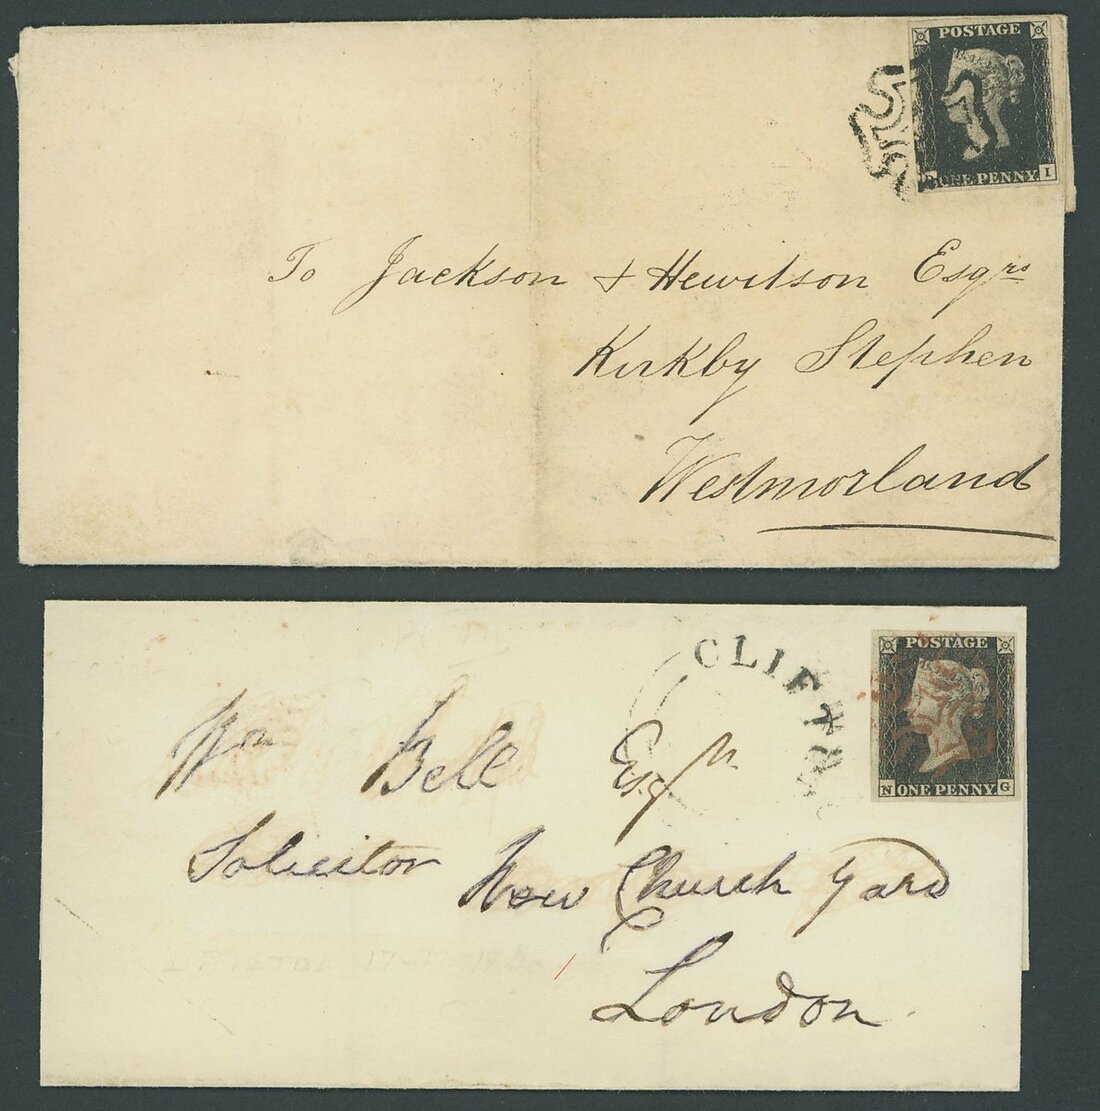 POSTAGE
ONE PENNY I
To Jackson & Hewitson Esqrs
Kirkby Stephen
Westmorland
CLIFTON
POSTAGE
N ONE PENNY G
Wm Bell Esqr
Solicitor New Church Yard
London